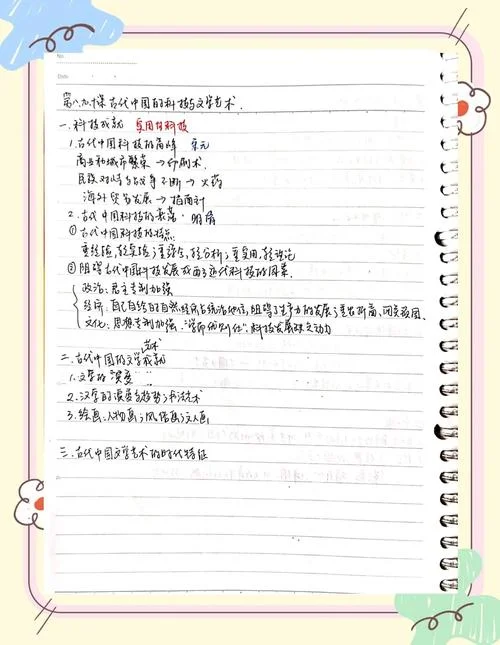 No
Date
第八、九、十课 古代中国的科技与文学艺术.
一. 科技成就 实用性科技
1. 古代中国科技的高峰 宋元
商业和城市繁荣→印刷术.
民族对峙与战争不断→火药
海外贸易发展→指南针
2. 古代中国科技的衰落 明清
①古代中国科技的特点
重经验,轻实验;重综合,轻分析;重实用,轻理论
②阻碍古代中国科技发展成而近代科技的因素.
政治:君主专制加强
经济:自己自给的自然经济占统治地位,阻碍了生产力的发展;重农抑商,闭关锁国.
文化:思想专制加强."学而优则仕"科技发展缺乏动力
艺术
二. 古代中国的文学成就
1. 文学的"演变"
2. 汉字的演员与趋势;书法艺术
3. 绘画:人物画;风俗画;文人画
三. 古代中国文学艺术的时代特征